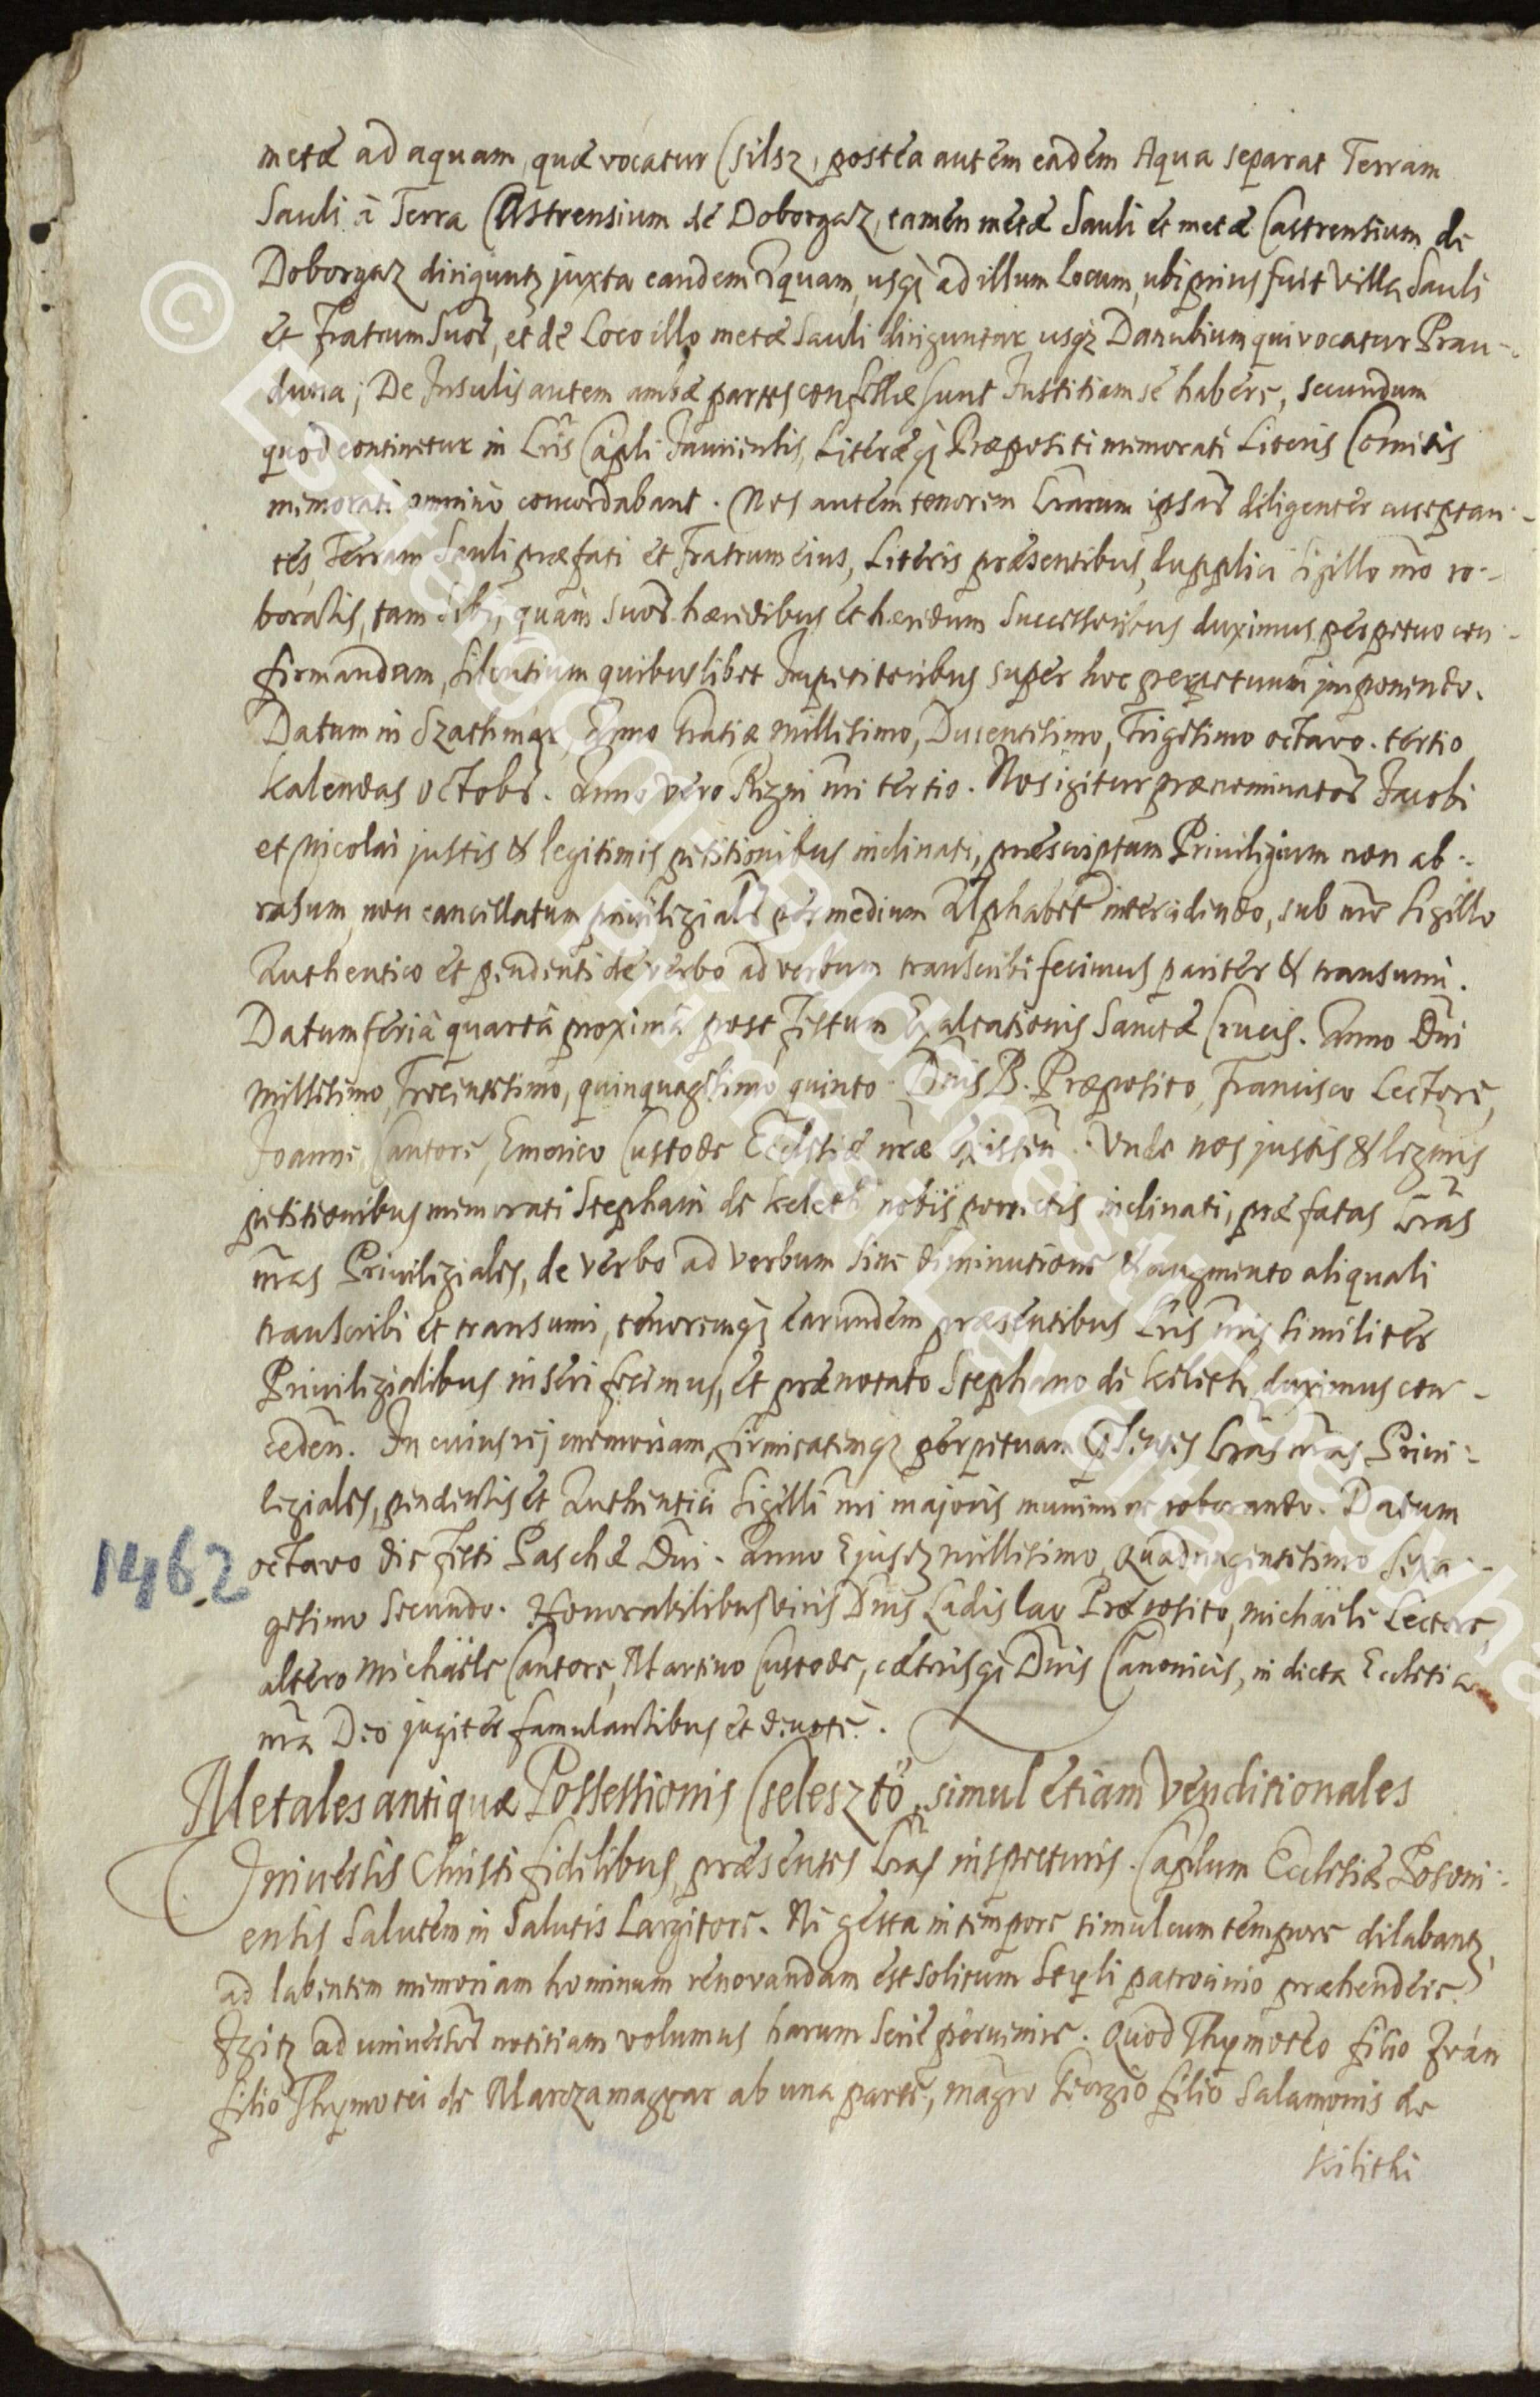 metæ ad aquam, quæ vocatur Csilsz, postea autem eadem Aqua separat Terram
Sauli à Terra Castrensium de Doborgaz, tamen metæ Sauli et metæ Castrensium de
Doborgaz diriguntz juxta eandem Aquam, usqz ad illum Locum, ubi prius fuit Villa Sauli
et Fratrum Suor, et de Loco illo metæ Sauli diriguntur usqz Danubium qui vocatur Prau-
duna; De Insulis autem ambæ partes confessæ sunt Justitiam se habere, secundum
quod continetur in Lris Capli Jauriensis, Literæqz Præpositi memorati Literis Comitis
memorati omnino concordabant. Nos autem tenorem Lrarum ipsar diligenter acceptan-
tes, Terram Sauli præfati et Fratrum eius, Literis præsentibus, dupplici Sigillo nro ro-
boratis, tam sibi, quam suor hæredibus et hæredum Successoribus duximus perpetuo con-
firmandam, silentium quibuslibet Impetitoribus super hoc perpetuum imponendo.
Datum in Szathmar, Anno Gratiæ Millesimo, Ducentesimo, Trigesimo octavo. tertio
Kalendas Octobr. Anno vero Regni nri tertio. Nos igitur prænominator Jacobi
et Nicolai justis & legitimis petitionibus inclinati, præscriptum Privilegium non ab-
rasum, non cancellatum privilegialr per medium Alphabetr intercidendo, sub nro Sigillo
Authentico et pendenti de verbo ad verbum transcribi fecimus pariter & transumi.
Datum feriâ quartâ proximâ post Festum Exaltationis Sanctæ Crucis. Anno Dni
Millesimo, Trecentesimo, quinquagesimo quinto. Dnis B. Præposito, Francisco Lectore,
Joanne Cantore, Emerico Custode Ecclesiæ nræ existen. Unde nos justis & legmis
petitionibus memorati Stephani de Keleth nobis porrectis inclinati, præfatas Lras
nras Privilegiales, de verbo ad verbum sine diminutione & augmento aliquali
transcribi et transumi, tenoremqz earundem præsentibus Lris nris similiter
Privilegialibus inseri fecimus, et prænotato Stephano de Kilith duximus con-
ceden. In cuius rej memoriam, firmitatemqz perpetuam psentes Lras nras Privi-
legiales, pendentis et Authentici Sigilli nri majoris munimine roborando. Datum
1462 octavo die Festi Paschæ Dni. Anno Ejusdz millesimo, Quadringentesimo Sexa-
gesimo Secundo. Honorabilibus viris Dnis Ladislao Præposito, Michäele Lectore,
altero Michäele Cantore, Martino Custode, cætrisqz Dnis Canonicis, in dicta Ecclesia
nra Deo jugiter famulantibus et devote.
Metales antiquæ Possessionis Cselesztö, simul etiam Venditionales
Universis Christi fidelibus, præsentes Lras inspecturis. Caplum Ecclesiæ Posoni-
ensis Salutem in Salutis Largitore. Ne gesta in tempore simul cum tempore dilabantz,
ad labentem memoriam hominum renovandam est solitum Scripti patrocinio præhendere.
Igitz ad universor notitiam volumus harum serie pervenire. Quod Thymoteo filio Iván
filio Thymotei de Maroza magyar ab una parte, magro Georgio filio Salamonis de
Kilithi